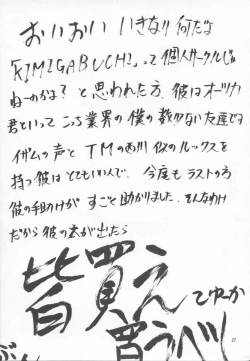 おいおい いきなり何だよ
「KIMIGABUCHI」って個人サークルじゃ
ねーのかよ？と思われた方。彼はオーツカ
君といって こっち業界の僕の数少ない友達です
イザムの声とTMの西川似のルックスを
持つ彼はとてもいい人で、今度もラストの方
彼の手助けが すごく助かりました。そんなわけ
だから 彼の本が出たら
皆買え
てゆーか
買うべし